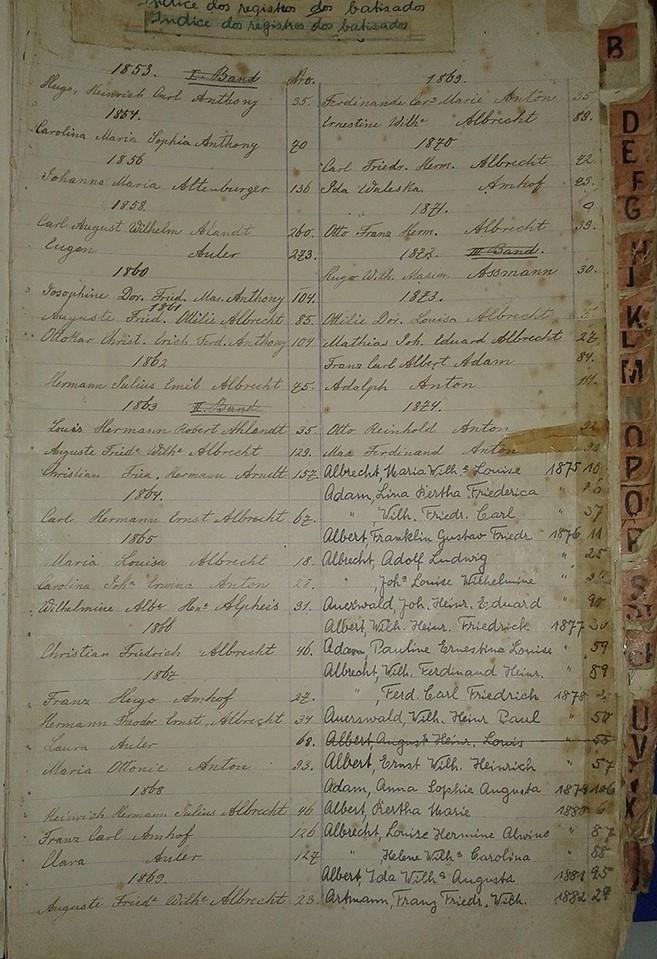 Indice dos registros dos batisados
Indice dos registros dos batisados
1853. I. Band No.
Hugo, Heinrich Carl Anthony 35.
1854.
Carolina Maria Sophia Anthony 70
1856
Johanna Maria Altenburger 136
1858.
Carl August Wilhelm Alandt 260.
Eugen Auler 273.
1860
Josephine Dor. Fried. Mar. Anthony 104.
1861
Auguste Fried. Ottilie Albrecht 85.
Ottokar Christ. Erich Ferd. Anthony 104
1862
Hermann Julius Emil Albrecht 75.
1863 II. Band
Louis Hermann Robert Ahlandt 35.
Auguste Friedª Wilhª Albrecht 129.
Christian Fried. Hermann Arndt 157.
1864.
Carl Hermann Ernst Albrecht 67.
1865
Maria Louisa Albrecht 18.
Carolina Johª Erwina Anton
Wilhelmine Albª Henª Alpheis 31.
1866
Christian Friedrich Albrecht 46.
1867
Franz Hugo Amhof 27.
Hermann Theodor Ernst Albrecht 34
Laura Auler 68.
Maria Ottonie Anton 93.
1868
Heinrich Hermann Julius Albrecht 46
Franz Carl Amhof 126
Clara Auler 127
1869.
Auguste Friedª Wilhª Albrecht 23.
1869.
Ferdinande Carª Marie Anton 35
Ernestine Wilhª Albrecht 89.
1870
Carl Friedr. Herm. Albrecht 72.
Ida Waleska Amhof
1871. 9
Otto Franz Herm. Albrecht 39.
1872. III Band.
Hugo Wilh. Assmann 30.
1873.
Ottilie Dor. Louisa Albrecht
Mathias Joh. Eduard Albrecht 27,
Franz Carl Albert Adam 84.
Adolph Anton
1874.
Otto Reinhold Anton
Max Ferdinand Anton
Albrecht, Maria Wilhª Louise 1875 10
Adam, Lina Bertha Friederica " 26
" Wilh. Friedr. Carl " 37
Albert, Franklin Gustav Friedr. 1876 11
Albrecht, Adolf Ludwig " 25
" , Johª Louise Wilhelmine "
Auerswald, Joh. Heinr. Eduard " 90
Albert, Wilh. Heinr. Friedrich 1877
Adam Pauline Ernestina Louise " 59
Albrecht, Wilh. Ferdinand Heinr. " 89
" , Ferd. Carl Friedrich 1878 2
Auerswald, Wilh. Heinr Paul " 50
Albert, August Heinr. Louis " 55
Albert, Ernst Wilh. Heinrich " 57
Adam, Anna Sophie Augusta 1879 106
Albert, Bertha Marie 1880 6
Albrecht, Louise Hermine Alwine " 87
" Helene Wilhª Carolina " 88
Albert, Ida Wilhª Augusta 1881 95
Artmann, Franz Friedr. Wilh. 1882 29
B
D
E
F
G
H
J
K
L
M
N
O
P
Q
S
U
V
X